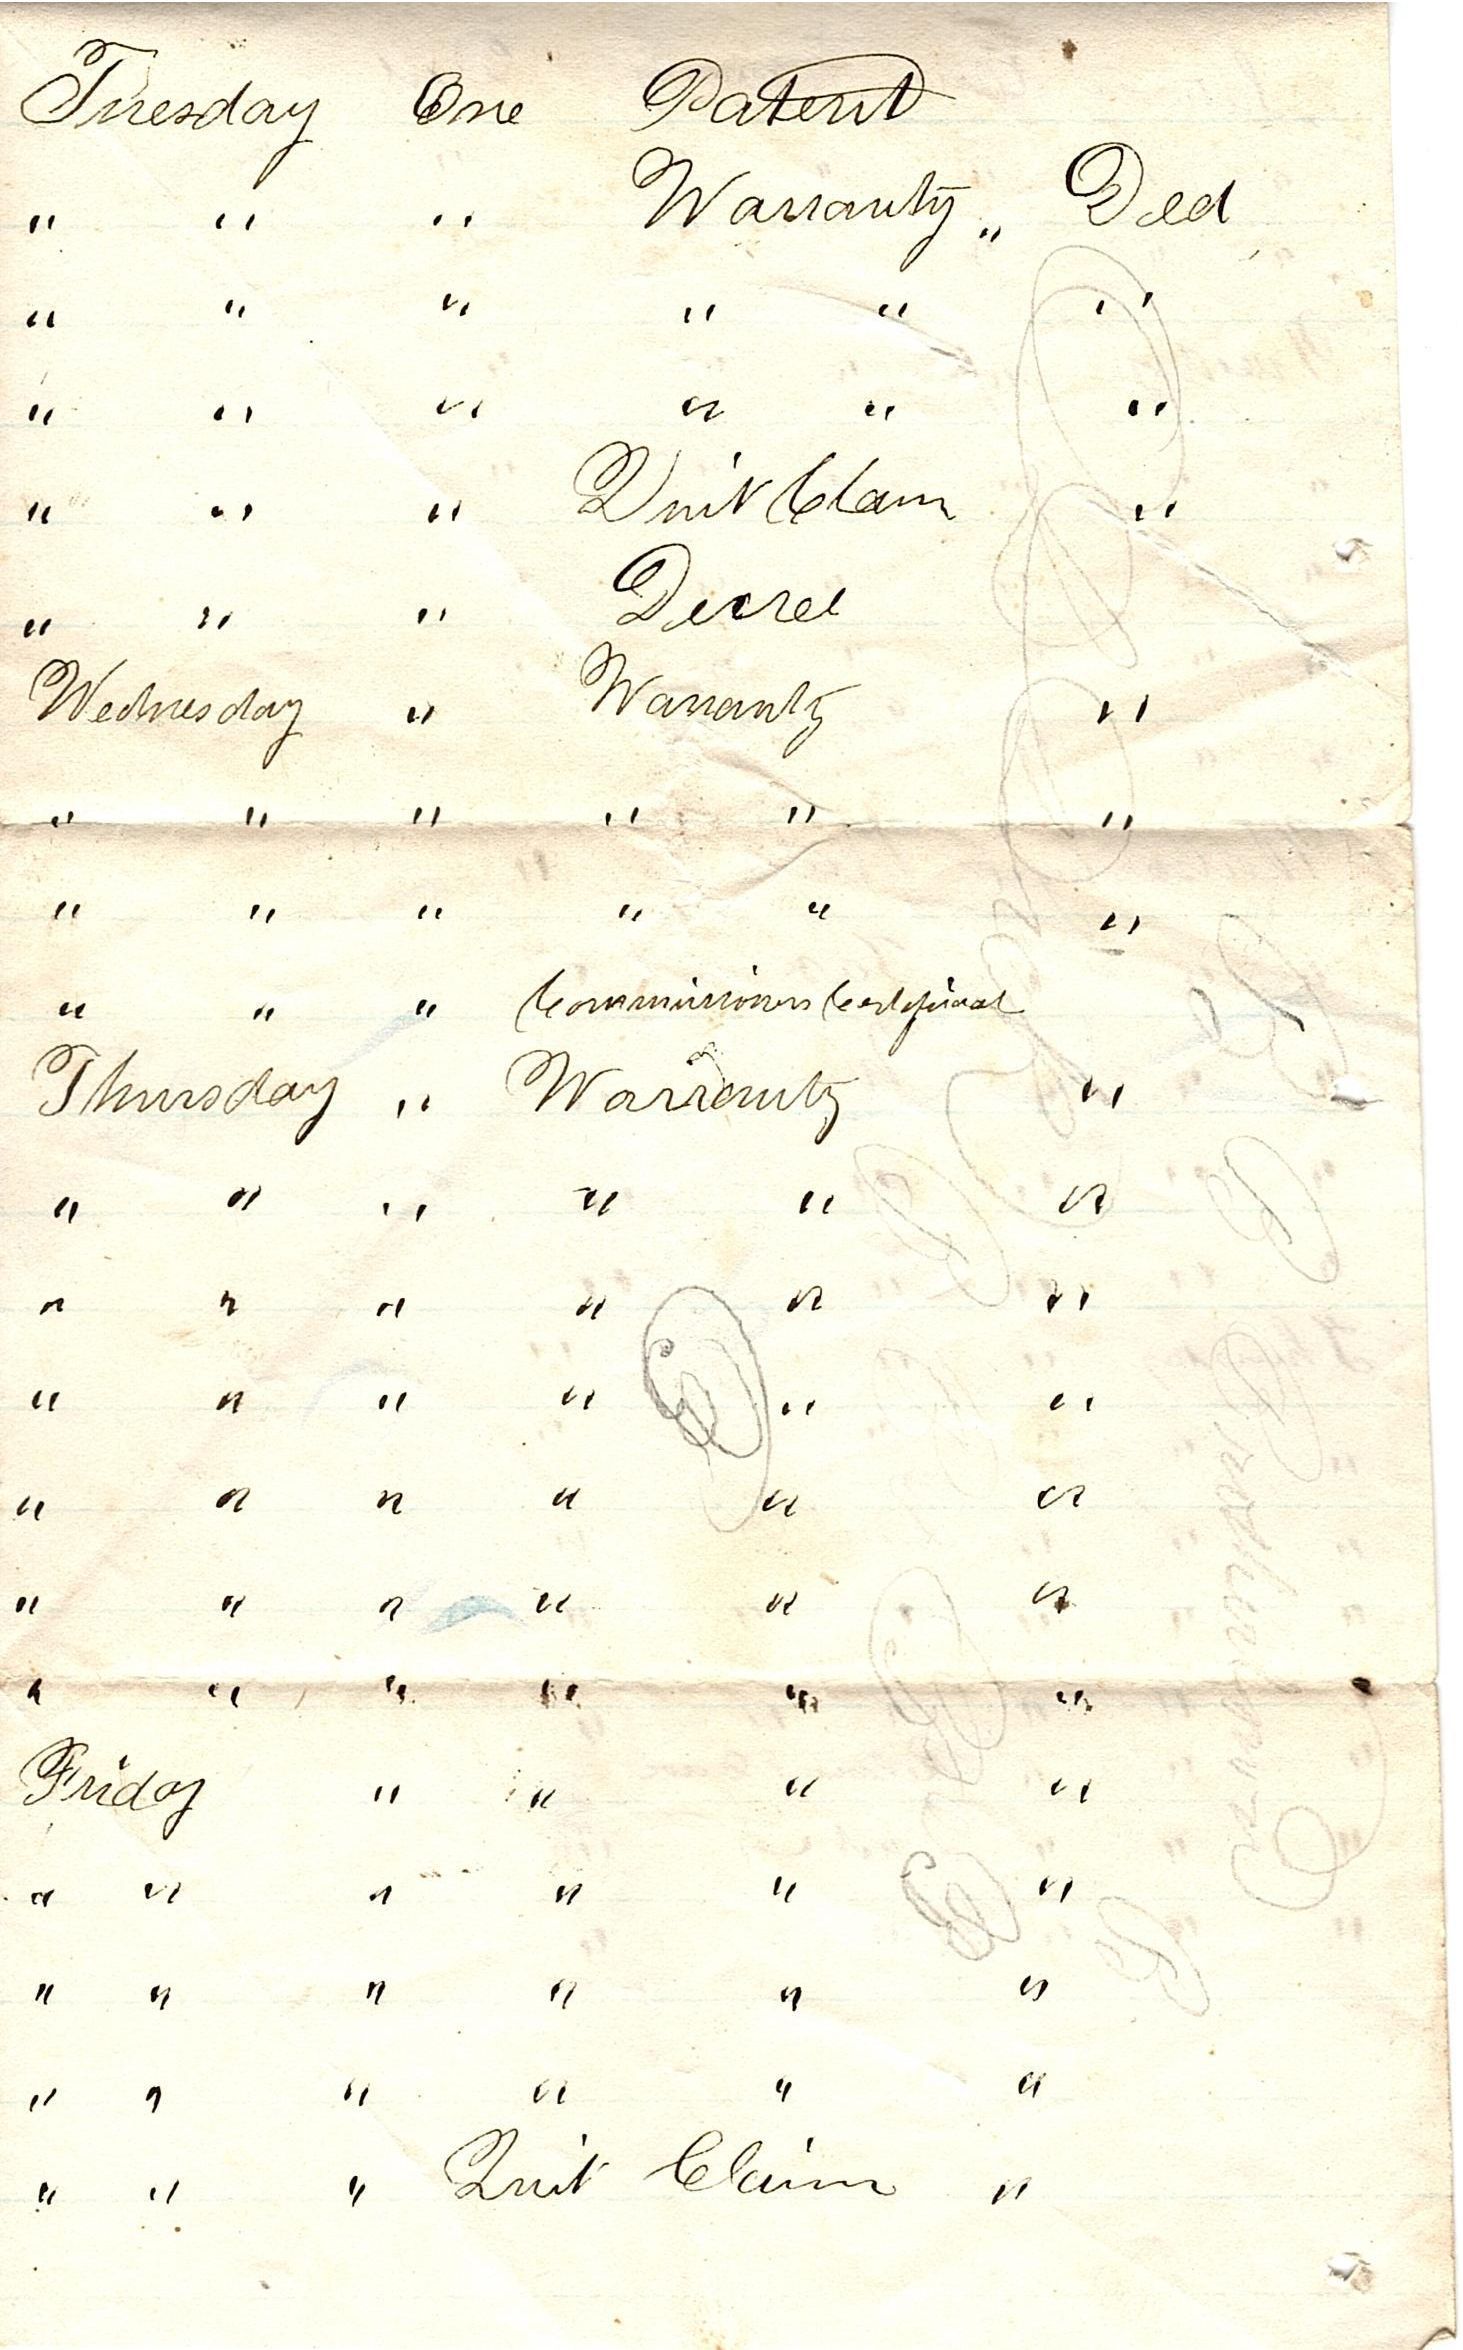 Tuesday One Patent
" " " Warranty " Deed
" " " " " "
" " " " " "
" " " Quit Claim "
" " " Decree
Wednesday " Warranty "
" " " " " "
" " " " " "
" " " Commissioners Certificat
Thursday " Warranty "
" " " " " "
" " " " " "
" " " " " "
" " " " " "
" " " " " "
" " " " " "
Friday " " " "
" " " " " "
" " " " " "
" " " " " "
" " " Quit Claim "